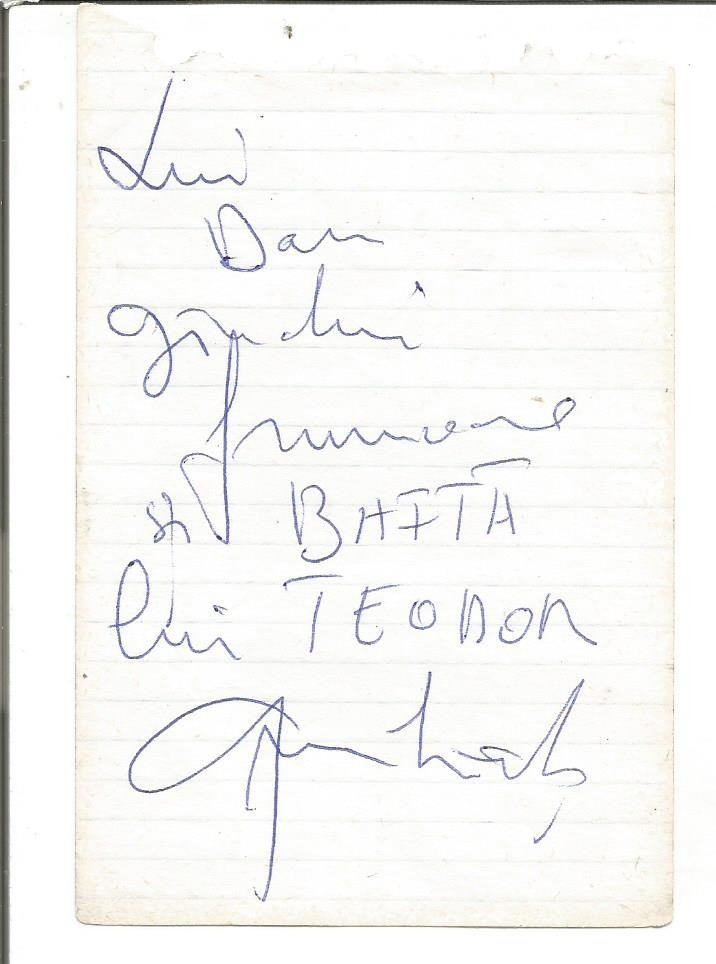 Lui
Dan
gînduri
frumoase
și BAFTĂ
lui TEODOR